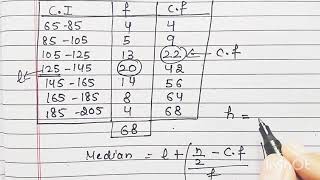 C.I f C.f
65-85 4 4
85-105 5 9
105-125 13 22 ← C.f
l 125-145 20 42
145-165 14 56
165-185 8 64
185-205 4 68
68
h =
Median = l + (n/2 - C.f / f